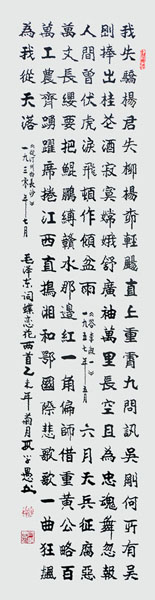 我失驕楊君失柳楊柳輕颺直上重霄九問訊吳剛何所有吳
剛捧出桂花酒寂寞嫦娥舒廣袖萬里長空且為忠魂舞忽報
人間曾伏虎淚飛頓作傾盆雨
《答李淑一》
一九五七年五月
六月天兵征腐惡
萬丈長纓要把鯤鵬縛贛水那邊紅一角偏師借重黃公略百
萬工農齊踴躍席捲江西直搗湘和鄂國際悲歌歌一曲狂飆
為我從天落
《從汀州向長沙》
一九三零年七月
毛泽东词蝶恋花两首乙未年菊月